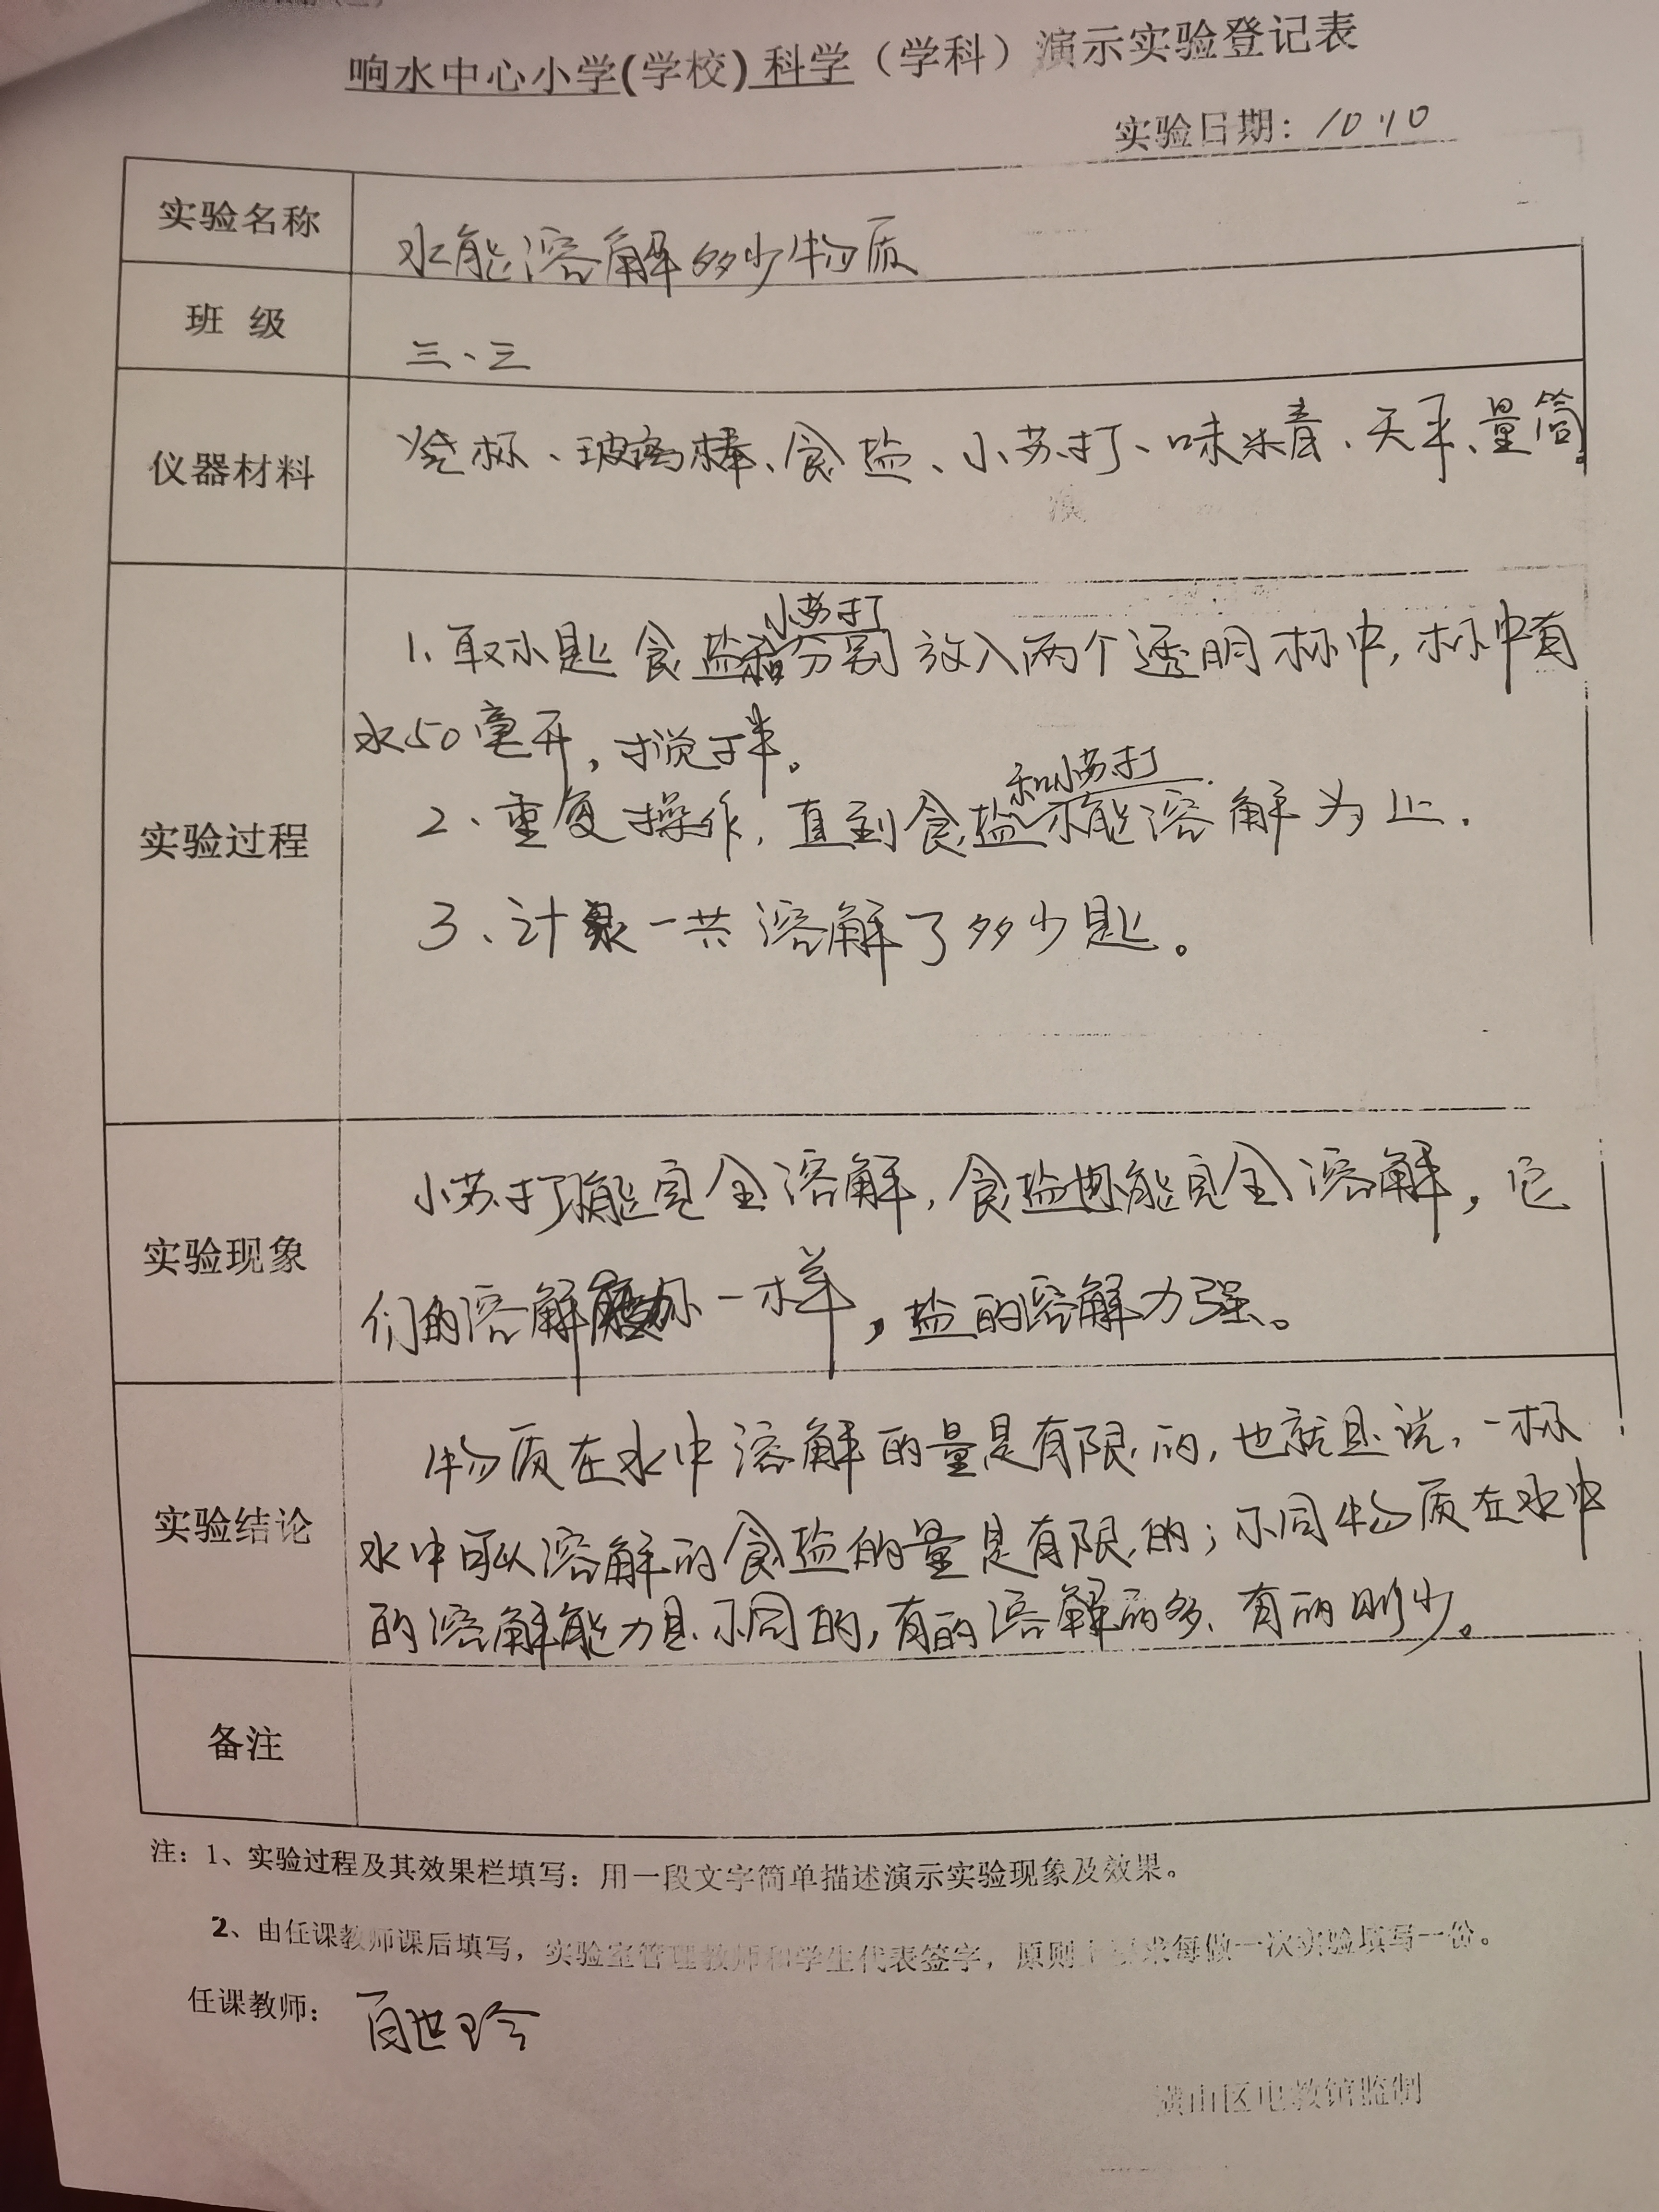 响水中心小学(学校)科学（学科）演示实验登记表
实验日期：10.10
实验名称
水能溶解多少物质
班 级
三、三
仪器材料
烧杯、玻璃棒、食盐、小苏打、味精、天平、量筒
实验过程
小苏打
1、取小匙食盐和分别放入两个透明杯中，杯中有
水50毫升，搅拌。
和小苏打
2、重复操作，直到食盐不能溶解为止.
3、计录一共溶解了多少匙。
实验现象
小苏打不能完全溶解，食盐也不能完全溶解，它
们的溶解不一样，盐的溶解力强。
实验结论
物质在水中溶解的量是有限的，也就是说，一杯
水中可以溶解的食盐的量是有限的；不同物质在水中
的溶解能力是不同的，有的溶解的多、有的则少。
备注
注：1、实验过程及其效果栏填写：用一段文字简单描述演示实验现象及效果。
2、由任课教师课后填写，实验室管理教师和学生代表签字，原则上要求每做一次实验填写一份。
任课教师：世玲
横山区电教馆监制